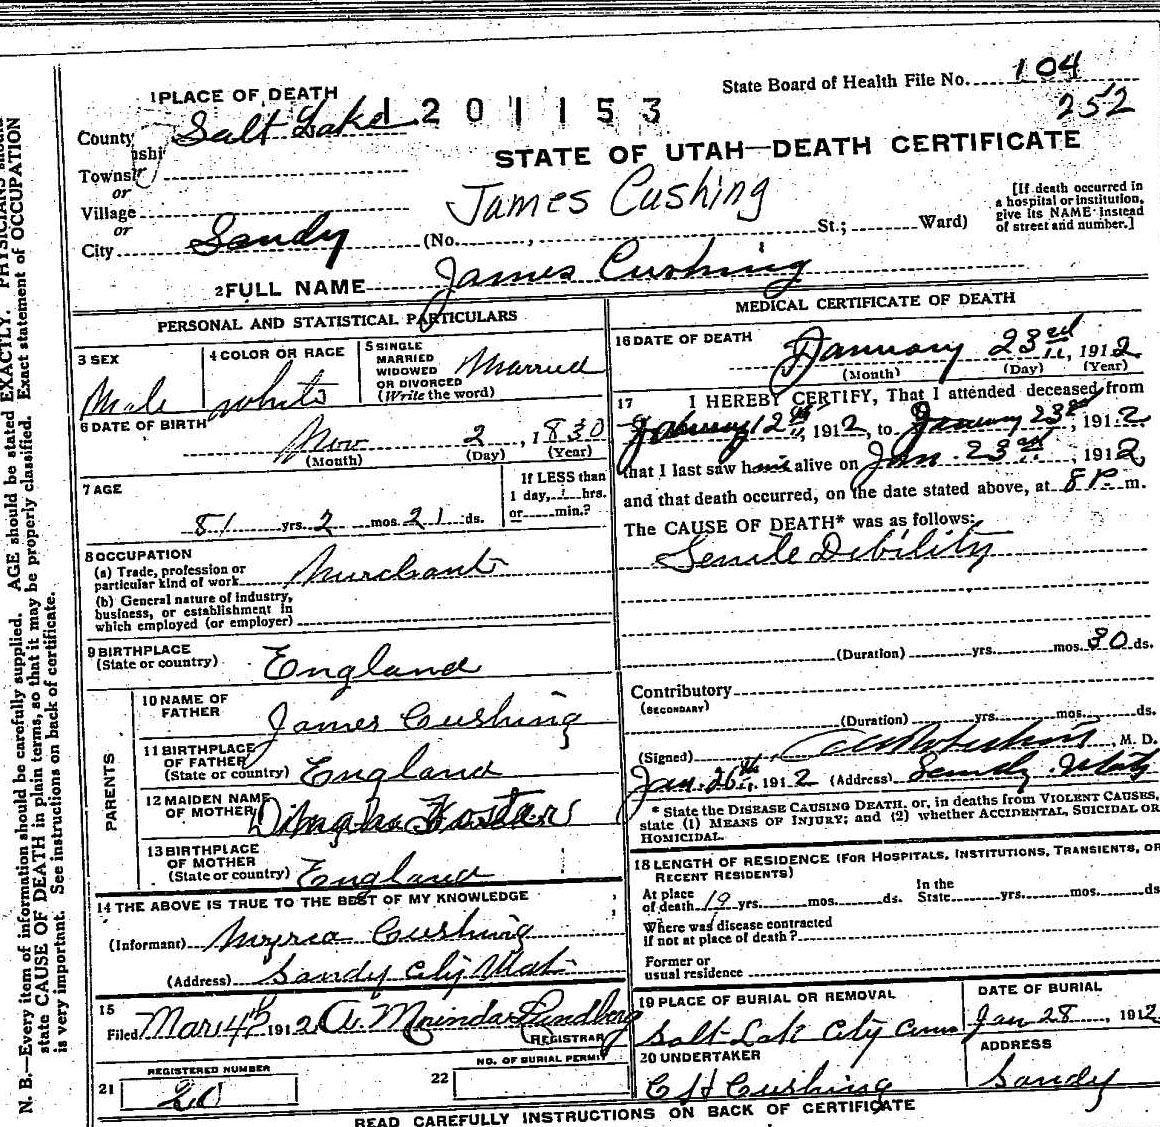 State Board of Health File No. 104
252
1 PLACE OF DEATH
1201153
County Salt Lake
STATE OF UTAH—DEATH CERTIFICATE
Township
or
Village
James Cushing
[If death occurred in a hospital or institution, give its NAME instead of street and number.]
or
City Sandy (No. , St.; Ward)
2 FULL NAME James Cushing
PERSONAL AND STATISTICAL PARTICULARS
3 SEX
Male
4 COLOR OR RACE
white
5 SINGLE MARRIED WIDOWED OR DIVORCED (Write the word)
Married
6 DATE OF BIRTH
Nov 2, 1830
(Month) (Day) (Year)
7 AGE
81 yrs. 2 mos. 21 ds.
If LESS than 1 day, hrs. or min.?
8 OCCUPATION
(a) Trade, profession or particular kind of work Merchant
(b) General nature of industry, business, or establishment in which employed (or employer)
9 BIRTHPLACE
(State or country) England
PARENTS
10 NAME OF FATHER James Cushing
11 BIRTHPLACE OF FATHER (State or country) England
12 MAIDEN NAME OF MOTHER Foster
13 BIRTHPLACE OF MOTHER (State or country) England
14 THE ABOVE IS TRUE TO THE BEST OF MY KNOWLEDGE
(Informant) Cushing
(Address) Sandy City Utah
15
Filed Mar 4th 1912 A. Lundberg
REGISTRAR
REGISTERED NUMBER
21 20
NO. OF BURIAL PERMIT
22
MEDICAL CERTIFICATE OF DEATH
16 DATE OF DEATH
January 23rd, 1912
(Month) (Day) (Year)
17 I HEREBY CERTIFY, That I attended deceased from
January 12th, 1912, to January 23rd, 1912
that I last saw him alive on Jan. 23rd, 1912
and that death occurred, on the date stated above, at 8 P. m.
The CAUSE OF DEATH* was as follows:
Senile Debility
(Duration) yrs. mos. 30 ds.
Contributory
(SECONDARY)
(Duration) yrs. mos. ds.
(Signed) , M. D.
Jan. 26th, 1912 (Address) Sandy Utah
* State the DISEASE CAUSING DEATH, or, in deaths from VIOLENT CAUSES, state (1) MEANS OF INJURY; and (2) whether ACCIDENTAL, SUICIDAL OR HOMICIDAL.
18 LENGTH OF RESIDENCE (FOR HOSPITALS, INSTITUTIONS, TRANSIENTS, OR RECENT RESIDENTS)
At place of death 19 yrs. mos. ds. In the State yrs. mos. ds
Where was disease contracted if not at place of death?
Former or usual residence
19 PLACE OF BURIAL OR REMOVAL
Salt Lak City Cem
DATE OF BURIAL
Jan 28, 1912
20 UNDERTAKER
C H Cushing
ADDRESS
Sandy
READ CAREFULLY INSTRUCTIONS ON BACK OF CERTIFICATE
N. B.—Every item of information should be carefully supplied. AGE should be stated EXACTLY. PHYSICIANS should
state CAUSE OF DEATH in plain terms, so that it may be properly classified. Exact statement of OCCUPATION
is very important. See instructions on back of certificate.